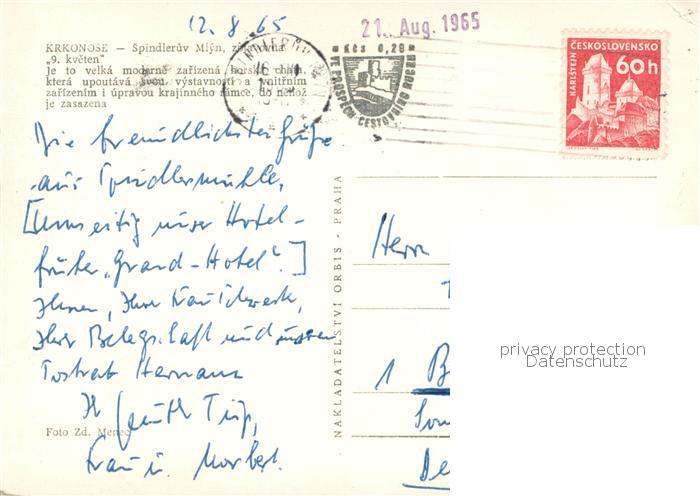 12.8.65
21. Aug. 1965
KRKONOŠE – Spindlerův Mlýn,
"9. květen"
Je to velká moderně zařízená horská chata,
která upoutává svou výstavností a vnitřním
zařízením i úpravou krajinného rámce, do něhož
je zasazena
Kčs 0,20
VE PROSPĚCH CESTOVNÍHO RUCHU
ČESKOSLOVENSKO
KARLŠTEJN
60h
Die freundlichsten Grüße
aus Spindlermühle,
[Umseitig unser Hotel -
früher „Grand-Hotel".]
Ihnen, Ihrer
Ihrer Belegschaft und unserem
Hermann
Ihr Günth
Frau u. Norbert.
Foto Zd. Menec
NAKLADATELSTVÍ ORBIS - PRAHA
Herrn
1 B
privacy protection
Datenschutz